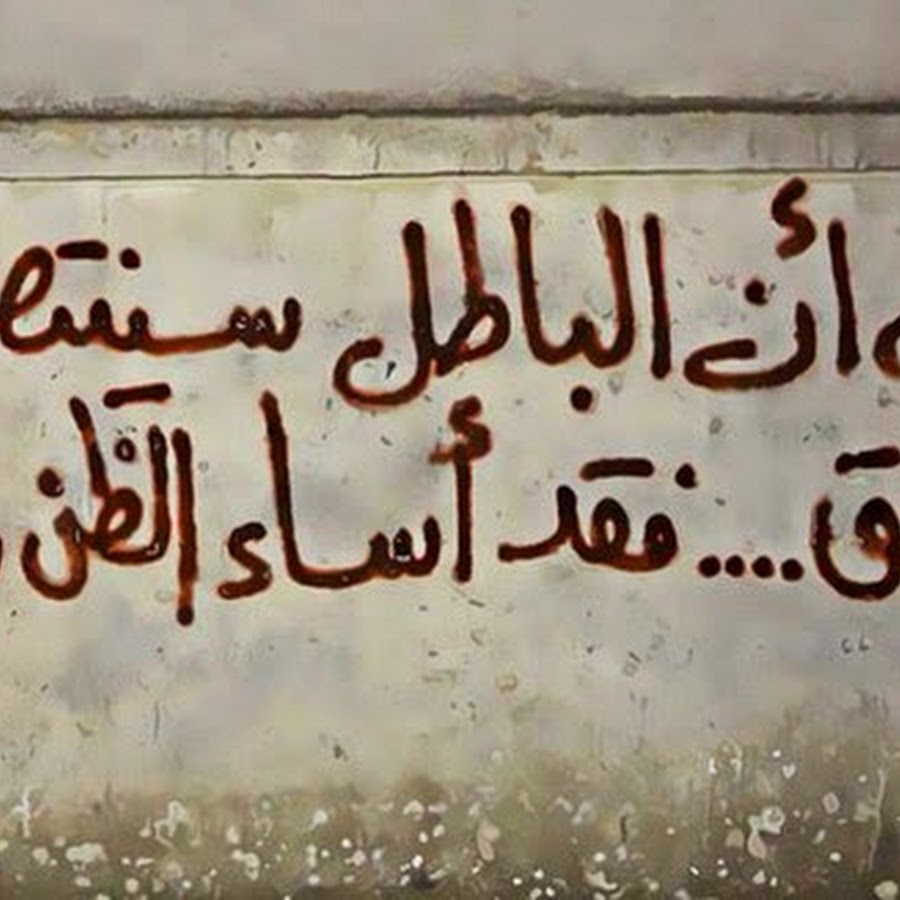 أن الباطل سينتص
ق .... فقد أساء الظن